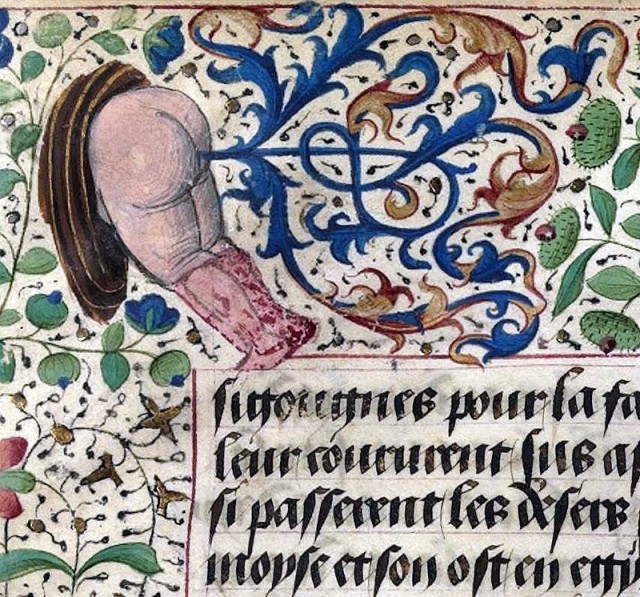 sigongnes pour la fa
leur coururent sus a
si passerent les desers
moyse et son ost en